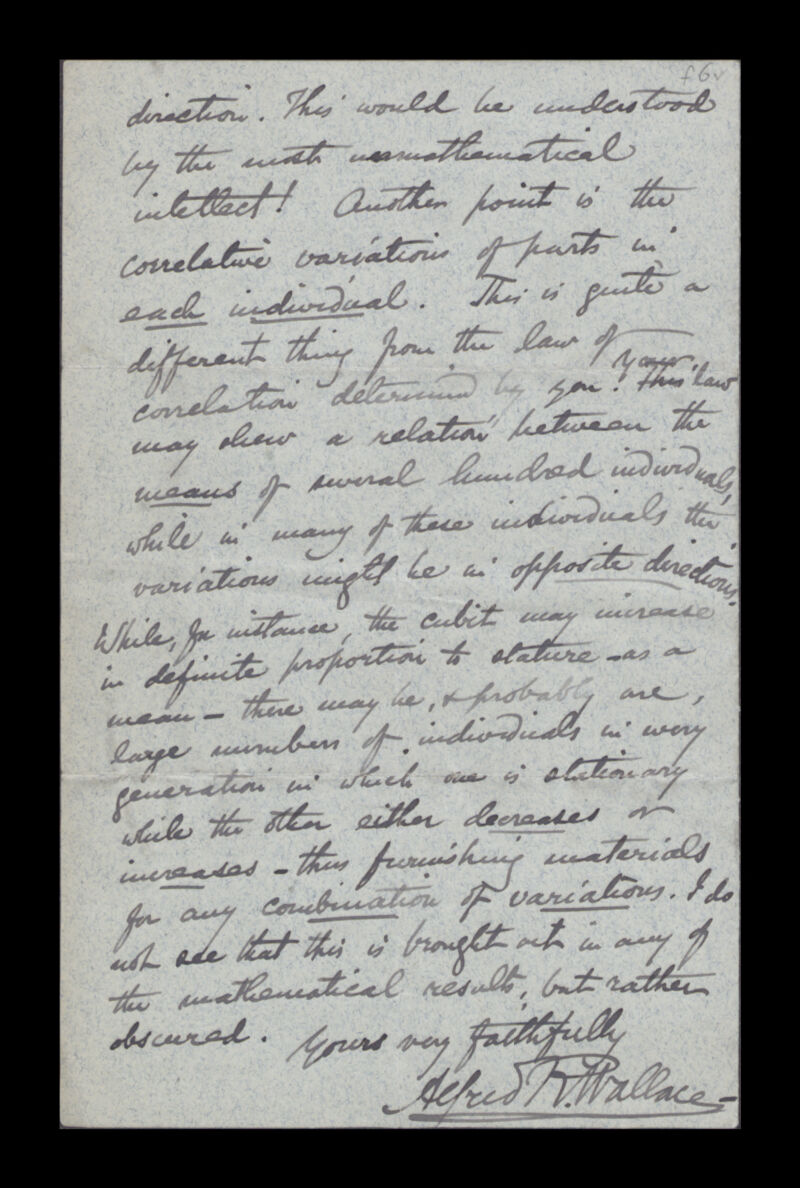 f6v
direction. This would be understood
by the most unmathematical
intellect! Another point is the
correlative variations of parts in
each individual. This is quite a
different thing from the law of
correlation determined by you. Your This law
may shew a relation between the
means of several hundred individuals,
while in many of these individuals the
variations might be in opposite directions.
While, for instance, the cubit may increase
in definite proportion to stature – as a
mean – there may be, & probably are,
large numbers of individuals in every
generation in which one is stationary
while the other either decreases or
increases – thus furnishing materials
for any combination of variations. I do
not see that this is brought out in any of
the mathematical results, but rather
obscured. Yours very faithfully
Alfred R. Wallace –